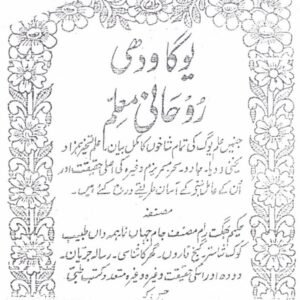 یوگا ودھی
روحانی معلم
جنمیں علم یوگ کی تمام شاخوں کا مکمل بیان۔ علم تسخیر ہمزاد
جادو۔ سحر۔ مسمریزم وغیرہ کی اصلی حقیقت اور
ان کے عامل بننے کے آسان طریقے درج کئے ہیں۔
مصنفہ
رام مصنف جام جہاں نما۔ ہمہ داں طبیب
کوک شاستر۔ گنج قاروں۔ گھر کا شناسی۔ رسالہ جریان۔
دودھ اور اسکی حقیقت وغیرہ وغیرہ متعدد کتب